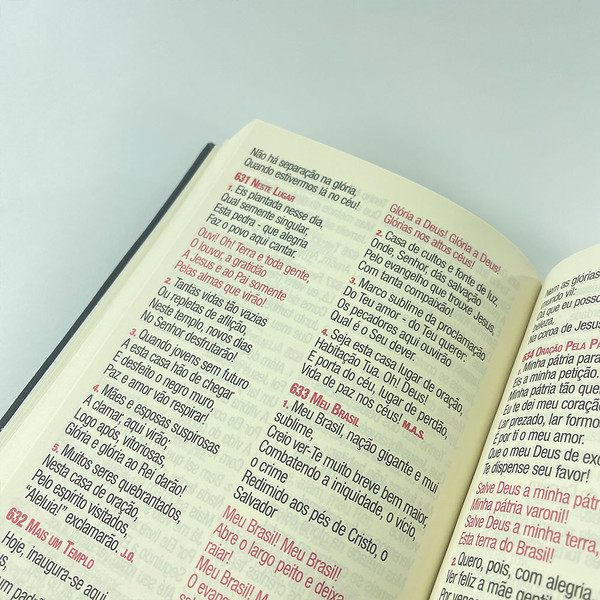 Não há separação na glória,
Quando estivermos lá no céu!
631 Neste Lugar
1. Eis plantada nesse dia,
Qual semente singular,
Esta pedra - que alegria
Faz o povo aqui cantar.
Ouvi! Oh! Terra e toda gente,
O louvor, a gratidão
A Jesus e ao Pai somente
Pelas almas que virão!
2. Tantas vidas tão vazias
Ou repletas de aflição,
Neste templo, novos dias
No Senhor desfrutarão!
3. Quando jovens sem futuro
A esta casa hão de chegar
E desfeito o negro muro,
Paz e amor vão respirar!
4. Mães e esposas suspirosas
A clamar aqui virão;
Logo após, vitoriosas,
Glória e glória ao Rei darão!
5. Muitos seres quebrantados,
Nesta casa de oração,
Pelo espírito visitados,
"Aleluia!" exclamarão. J.O.
632 Mais um Templo
Hoje, inaugura-se aqui
um pad
Glória a Deus! Glória a Deus!
Glórias nos altos céus!
2. Casa de cultos e fonte de luz,
Onde, Senhor, dás salvação
Pelo evangelho que trouxe Jesus,
Com tanta compaixão!
3. Marco sublime da proclamação
Do Teu amor - do Teu querer;
Os pecadores aqui ouvirão
Qual é o Seu dever.
4. Seja esta casa lugar de oração,
Habitação Tua, Oh! Deus!
E porta do céu, lugar de perdão,
Vida de paz nos céus! M.A.S.
633 Meu Brasil
1. Meu Brasil, nação gigante e mui
sublime,
Creio ver-Te muito breve bem maior,
Combatendo a iniquidade, o vício,
o crime
Redimido aos pés de Cristo, o
Salvador
Meu Brasil! Meu Brasil!
Abre o largo peito e deixa
raiar!
Meu Brasil! M
O evang
Nem as glórias
mundo vil;
Dá que eu posso
beleza,
Na coroa de Jesus
634 Oração Pela Pá
Minha pátria para
Eis a minha petição.
Minha pátria tão que
Eu te dei meu coraçã
Lar prezado, lar formo
É por ti o meu amor.
Que o meu Deus de exc
Te dispense seu favor!
Salve Deus a minha pátr
Minha pátria varonil!
Salve Deus a minha terra,
Esta terra do Brasil!
2. Quero, pois, com alegria
Ver feliz a mãe gentil
Por venc